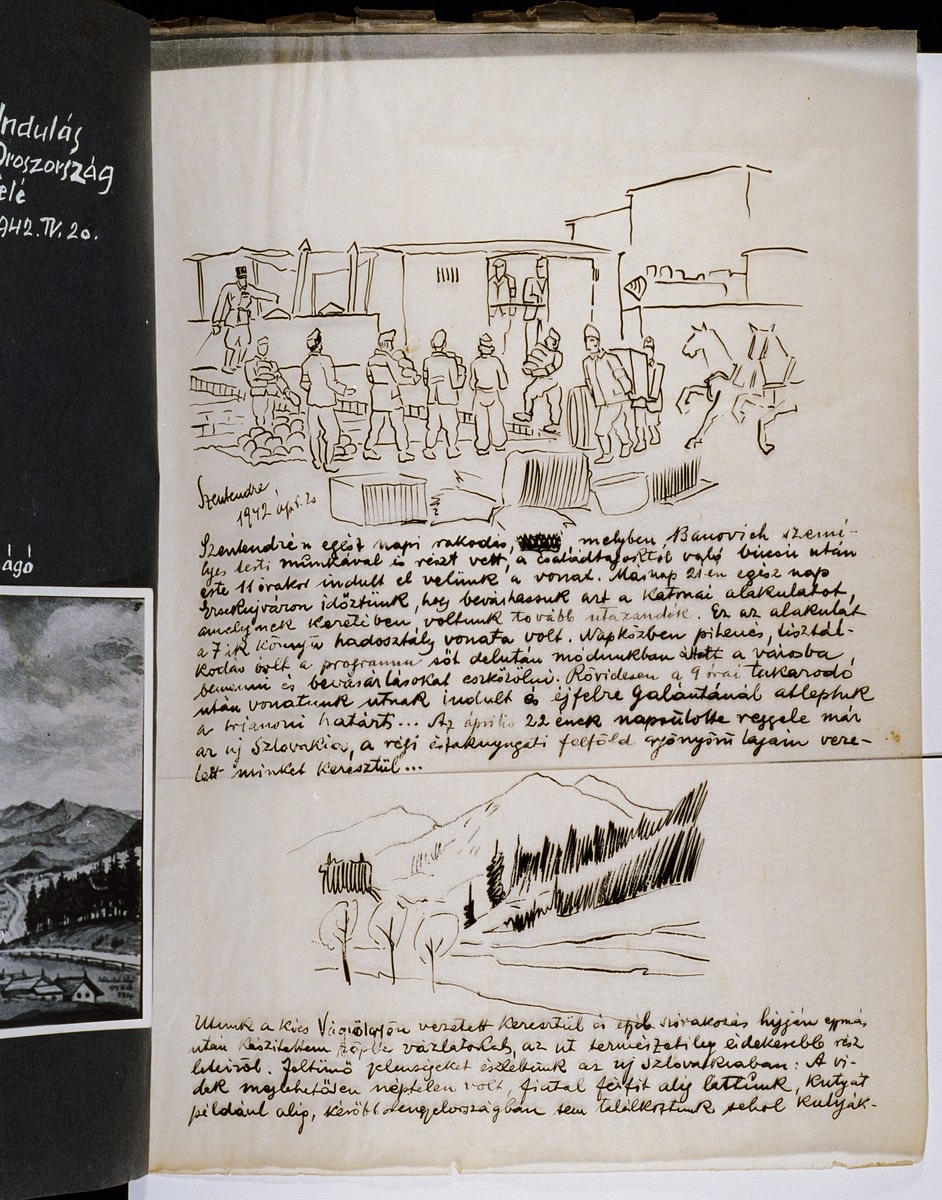 Indulás
Oroszország
felé
1942.IV.20.
ágó
Szentendre
1942 ápr. 20
Szentendrén egész napi rakodás, melyben Banovich szemé-
lyes testi munkával is részt vett, a családtagoktól való búcsu után
este 11 órakor indult el velünk a vonat. Másnap 21-én egész nap
Érsekujváron időztünk, hogy bevárhassuk azt a katonai alakulatot,
amelynek keretében voltunk tovább utazandók. Ez az alakulat
a 7ik könnyű hadosztály vonata volt. Napközben pihenés, tisztál-
kodás volt a programm sőt délután módunkban állott a városba
bemenni és bevásárlásokat eszközölni. Rövidesen a 9 órai takarodó
után vonatunk utnak indult és éjfélre Galántánál átléptük
a trianoni határt... Az április 22ének napsütötte reggele már
az uj Szlovákia, a régi északnyugati felföld gyönyörű tájain veze-
tett minket keresztül...
Utunk a Vágvölgyön vezetett keresztül és egyéb szórakozás hijján egymás
után készítettem vázlatokat, az ut természetileg érdekesebb rész
leteiről. Feltünő jelenségeket észleltünk az uj Szlovákiában: A vi-
dék meglehetősen néptelen volt, fiatal férfit alig láttunk, kutyát
például alig, később Lengyelországban sem találkoztunk sehol kutyák-